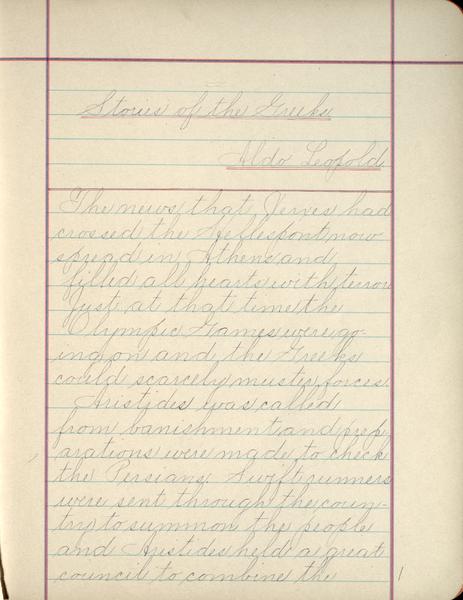 Stories of the Greeks
Aldo Leopold
The news that Xerxes had
crossed the Hellespont now
spread in Athens and
filled all hearts with terror
Just at that time the
Olympic Games were go-
ing on and the Greeks
could scarcely muster forces.
Aristides was called
from banishment and prep
arations were made to check
the Persians. Swift runners
were sent through the coun-
try to summon the people
and Aristides held a great
council to combine the
1